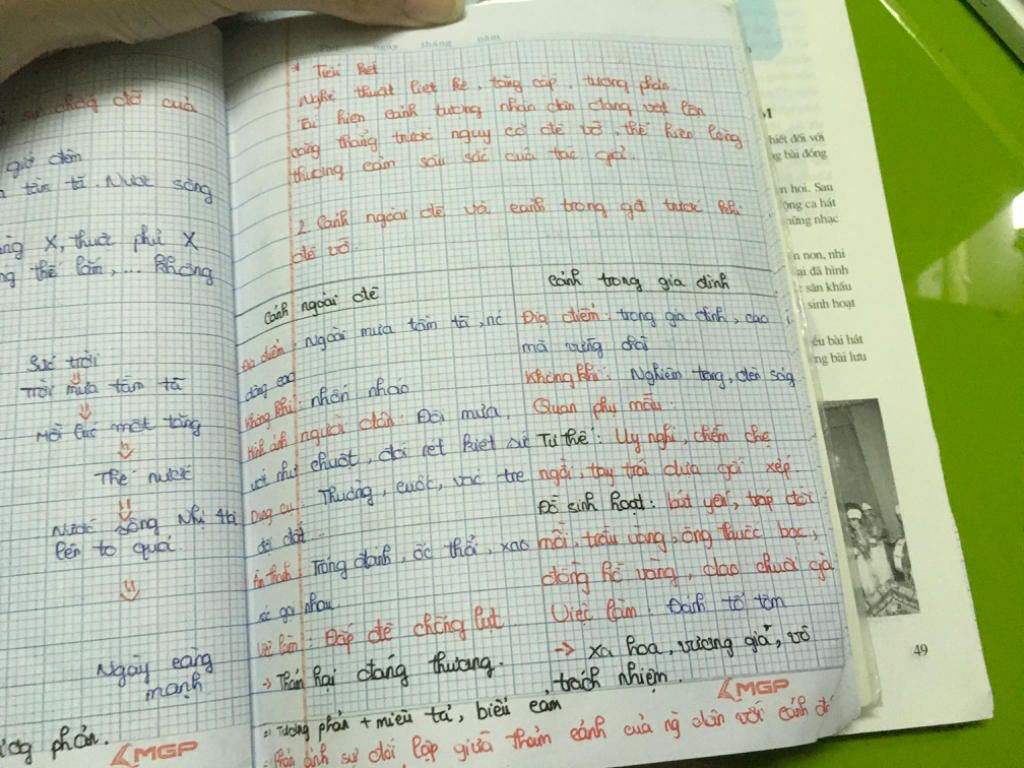 Thứ ngày tháng năm
* Tiểu kết
Nghệ thuật liệt kê, tăng cấp, tương phản.
Tái hiện cảnh tượng nhân dân đang vật lộn
căng thẳng trước nguy cơ đê vỡ, thể hiện lòng
thương cảm sâu sắc của tác giả.
2. Cảnh ngoài đê và cảnh trong gđ trước khi
đê vỡ.
Cảnh ngoài đê
Địa điểm: Ngoài mưa tầm tã, nc
dâng cao
Không khí: nhốn nháo
Hình ảnh người dân: Đội mưa,
ướt như chuột, đói rét kiệt sứ
Dụng cụ: Thuổng, cuốc, vác tre
đội đất...
Âm thanh: Trống đánh, ốc thổi, xao
xác gọi nhau.
Việc làm: Đắp đê chống lụt
→ Thảm hại đáng thương.
Cảnh trong gia đình
Địa điểm: trong gia đình, cao
mà vững chãi
Không khí: Nghiêm trang, đèn sáng
Quan phụ mẫu:
Tư thế: Uy nghi, chễm chệ
ngồi, tay trái dựa gối xếp.
Đồ sinh hoạt: bát yến, tráp đồi
mồi, trầu vàng, ống thuốc bạc,
đồng hồ vàng, dao chuôi ngà
Việc làm: Đánh tổ tôm
→ xa hoa, vương giả, vô
trách nhiệm.
=> Tương phản + miêu tả, biểu cảm
Phản ánh sự đối lập giữa thảm cảnh của ng dân với cảnh
MGP
sự chống đỡ của
giờ đêm
tầm tã. Nước sông
X, thuộc phủ X
thế lắm, ... không
Sức trời
Trời mưa tầm tã
⇓
Mỗi lúc một tăng
⇓
Thế nước
⇓
Nước sông Nhị Hà
lên to quá
⇓
Ngày càng
mạnh
phản.
MGP
M
hiết đối với
g bài đồng
n hoi. Sau
ồng ca hát
hững nhạc
n non, nhi
ại đã hình
sân khấu
sinh hoạt
ều bài hát
ng bài lưu
49